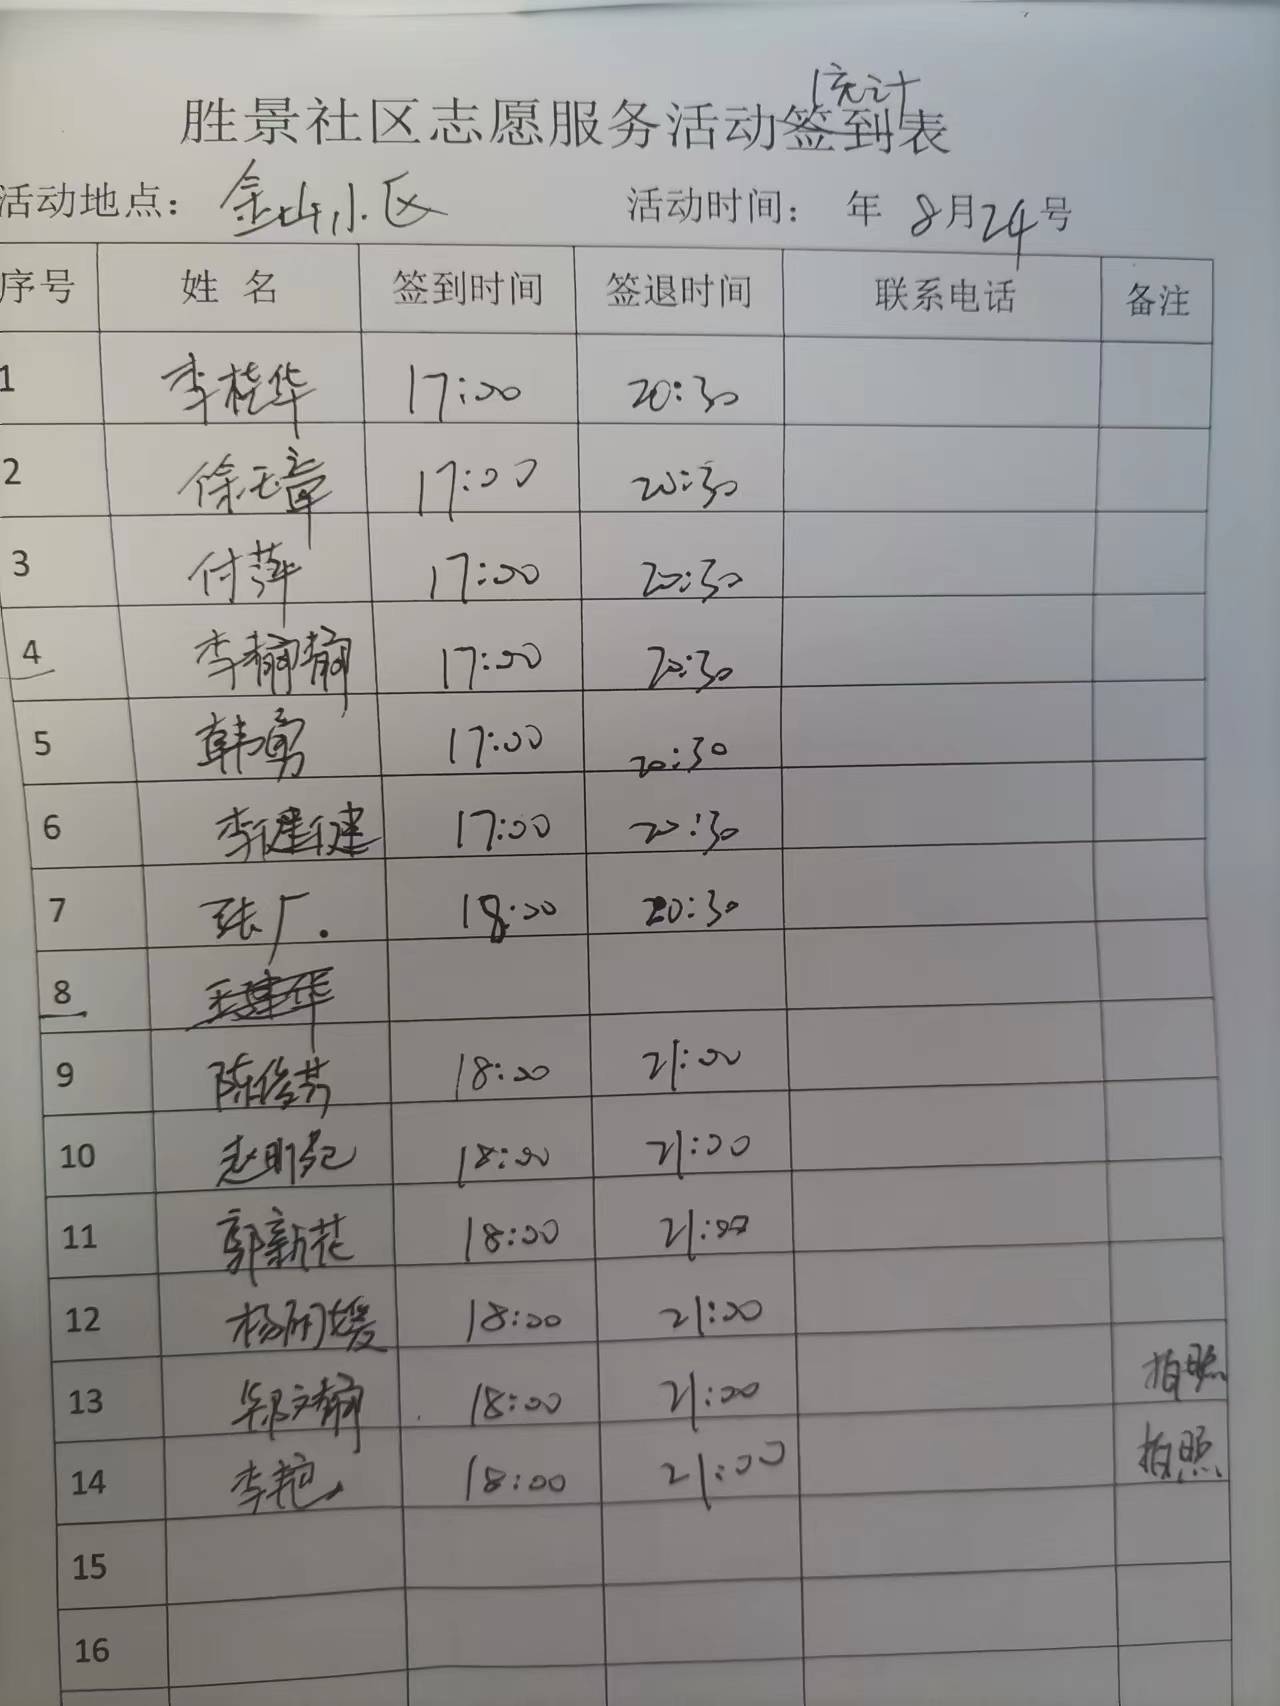 统计
胜景社区志愿服务活动签到表
活动地点：金山小区 活动时间： 年 8月24号
序号 姓 名 签到时间 签退时间 联系电话 备注
1 李桂华 17:00 20:30
2 徐玉章 17:00 20:30
3 付萍 17:00 20:30
4 李静静 17:00 20:30
5 韩勇 17:00 20:30
6 李健健 17:00 20:30
7 张广. 18:00 20:30
8
9 陈俊芳 18:00 21:00
10 18:00 21:00
11 郭新花 18:00 21:00
12 18:00 21:00
13 郑文静 18:00 21:00 拍照
14 李艳 18:00 21:00 拍照
15
16